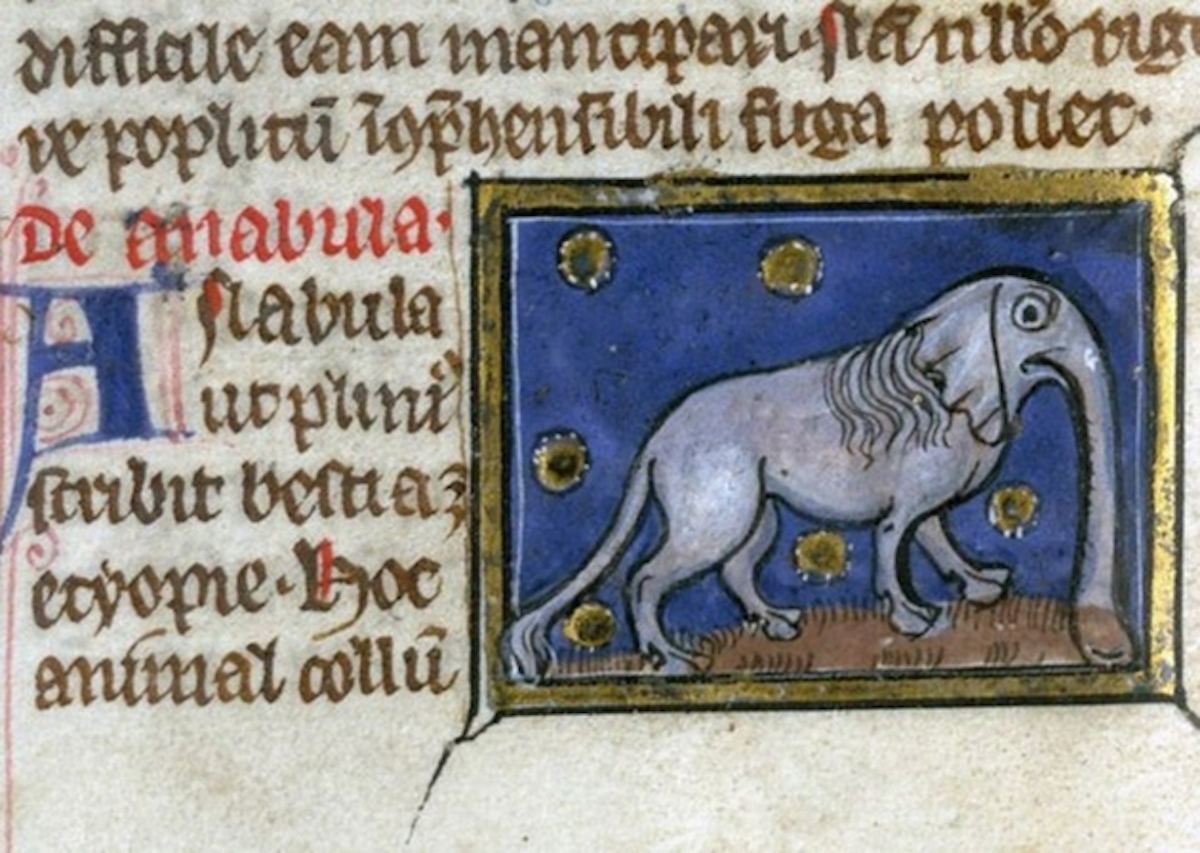 difficile eam mancipari. nullo vigo
re poplitū īcōp̄hensibili fuga pollet.
De anabula.
ANabula
ut plini⁹
scribit bestia ꝫ
etyopie. Hoc
animal collū